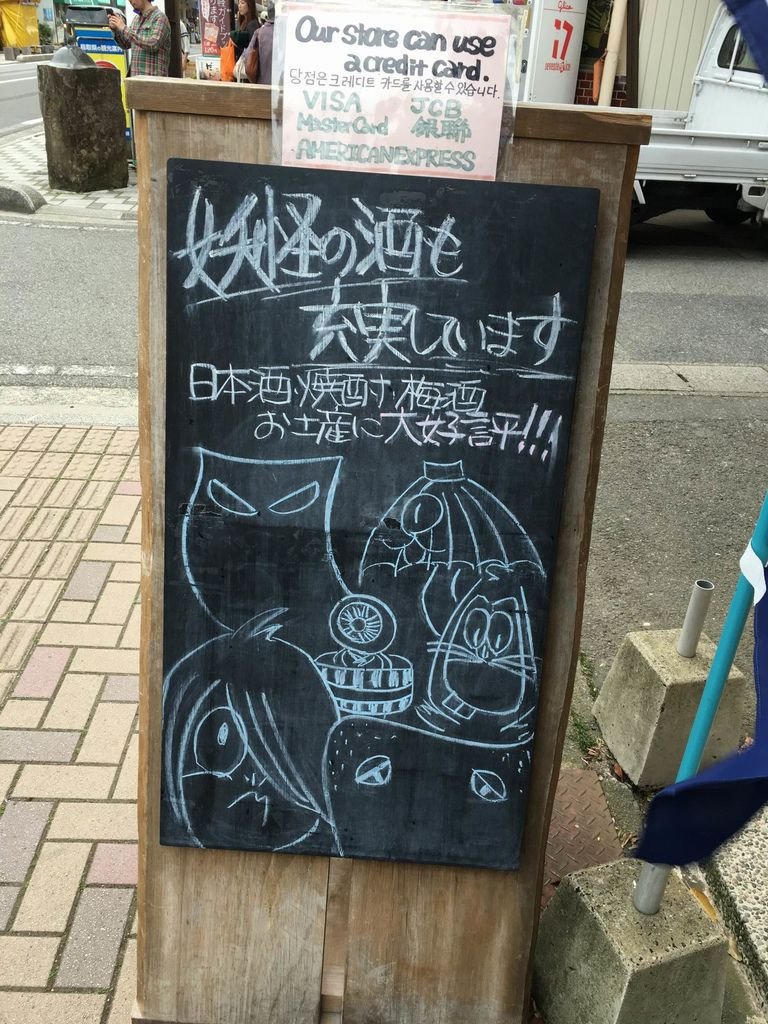 Our store can use
a credit card.
당점은크레디트 카드를 사용할 수 있습니다.
VISA JCB
MasterCard 銀聯
AMERICANEXPRESS
妖怪の酒も
充実しています
日本酒・焼酎・梅酒
お土産に大好評!!!
Glico
17